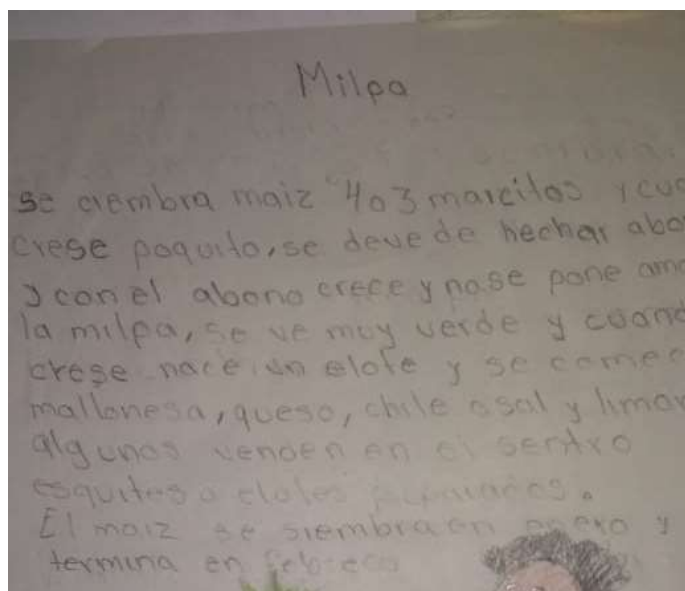 Milpa
se ciembra maiz 4 o 3 maicitos y cua
crese poquito, se deve de hechar abo
y con el abono crece y no se pone ama
la milpa, se ve muy verde y cuand
crese nace un elote y se come c
mallonesa, queso, chile o sal y limon
algunos venden en el sentro
esquites o elotes preparados.
El maiz se siembra en enero y
termina en febrero